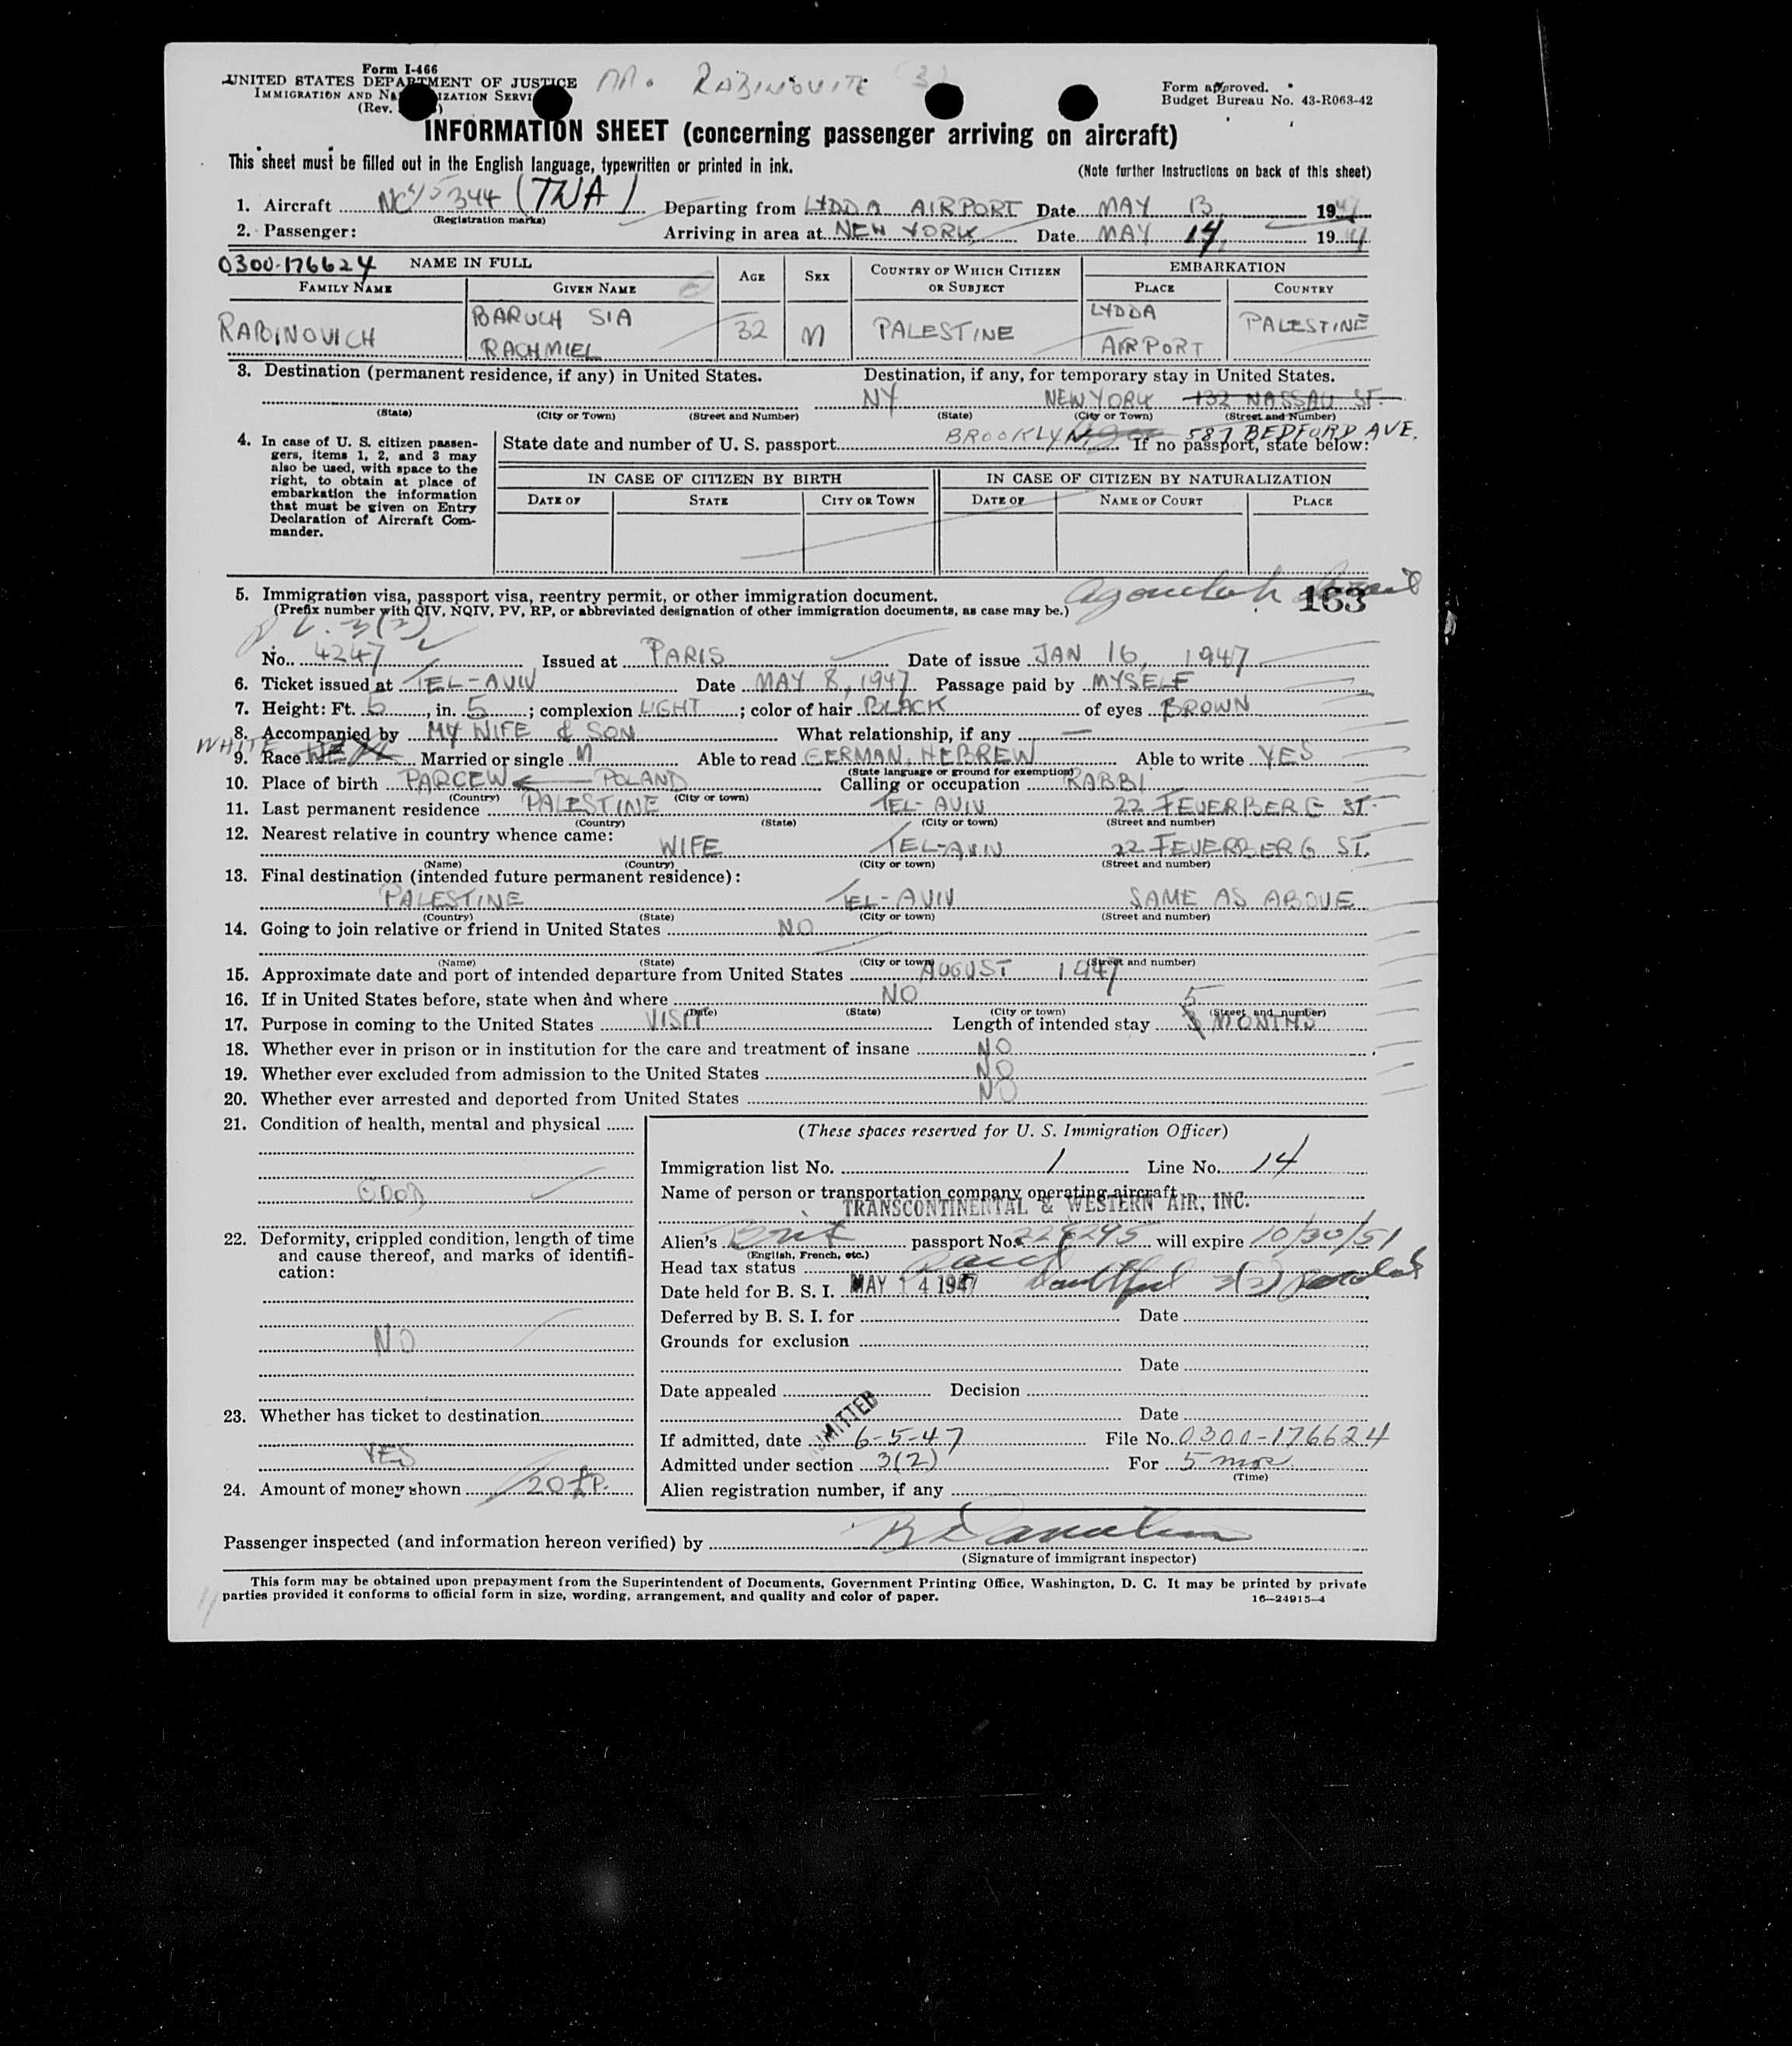 Form I-466
UNITED STATES DEPARTMENT OF JUSTICE
IMMIGRATION AND NA IZATION SERVI
(Rev. )
RABINOVITE (3)
Form approved.
Budget Bureau No. 43-R063-42
INFORMATION SHEET (concerning passenger arriving on aircraft)
This sheet must be filled out in the English language, typewritten or printed in ink.
(Note further instructions on back of this sheet)
1. Aircraft NC 45344 (TWA) Departing from LYDDA AIRPORT Date MAY 13, 1947
(Registration marks)
2. Passenger: Arriving in area at NEW YORK Date MAY 14, 1947
0300-176624 NAME IN FULL
FAMILY NAME GIVEN NAME AGE SEX COUNTRY OF WHICH CITIZEN OR SUBJECT EMBARKATION
PLACE COUNTRY
RABINOVICH BARUCH SIA RACHMIEL 32 M PALESTINE LYDDA AIRPORT PALESTINE
3. Destination (permanent residence, if any) in United States. Destination, if any, for temporary stay in United States.
NY NEW YORK 132 NASSAU ST.
(State) (City or Town) (Street and Number) (State) (City or Town) (Street and Number)
BROOKLYN 587 BEDFORD AVE.
4. In case of U. S. citizen passengers, items 1, 2, and 3 may also be used, with space to the right, to obtain at place of embarkation the information that must be given on Entry Declaration of Aircraft Commander.
State date and number of U. S. passport If no passport, state below:
IN CASE OF CITIZEN BY BIRTH IN CASE OF CITIZEN BY NATURALIZATION
DATE OF STATE CITY OR TOWN DATE OF NAME OF COURT PLACE
5. Immigration visa, passport visa, reentry permit, or other immigration document.
(Prefix number with QIV, NQIV, PV, RP, or abbreviated designation of other immigration documents, as case may be.)
Agoudah Israel 163
3(2)
No. 4247 Issued at PARIS Date of issue JAN 16, 1947
6. Ticket issued at TEL-AVIV Date MAY 8, 1947 Passage paid by MYSELF
7. Height: Ft. 5, in. 5; complexion LIGHT; color of hair BLACK of eyes BROWN
8. Accompanied by MY WIFE & SON What relationship, if any —
WHITE
9. Race Married or single M Able to read GERMAN, HEBREW Able to write YES
(State language or ground for exemption)
10. Place of birth PARCEW POLAND Calling or occupation RABBI
(Country) (City or town)
11. Last permanent residence PALESTINE TEL-AVIV 22 FEUERBERG ST.
(Country) (State) (City or town) (Street and number)
12. Nearest relative in country whence came:
WIFE TEL-AVIV 22 FEUERBERG ST.
(Name) (Country) (City or town) (Street and number)
13. Final destination (intended future permanent residence):
PALESTINE TEL-AVIV SAME AS ABOVE
(Country) (State) (City or town) (Street and number)
14. Going to join relative or friend in United States NO
(Name) (State) (City or town) (Street and number)
15. Approximate date and port of intended departure from United States AUGUST 1947
16. If in United States before, state when and where NO
(Date) (State) (City or town) (Street and number)
17. Purpose in coming to the United States VISIT Length of intended stay 5 MONTHS
18. Whether ever in prison or in institution for the care and treatment of insane NO
19. Whether ever excluded from admission to the United States NO
20. Whether ever arrested and deported from United States NO
21. Condition of health, mental and physical
GOOD
22. Deformity, crippled condition, length of time and cause thereof, and marks of identification:
NO
23. Whether has ticket to destination
YES
24. Amount of money shown 20 £P.
(These spaces reserved for U. S. Immigration Officer)
Immigration list No. 1 Line No. 14
Name of person or transportation company operating aircraft
TRANSCONTINENTAL & WESTERN AIR, INC.
Alien's Brit passport No. 228245 will expire 10/30/51
(English, French, etc.)
Head tax status
Date held for B. S. I. MAY 14 1947 doubtful 3(2)
Deferred by B. S. I. for Date
Grounds for exclusion
Date
Date appealed Decision
Date
ADMITTED
If admitted, date 6-5-47 File No. 0300-176624
Admitted under section 3(2) For 5 mos.
(Time)
Alien registration number, if any
Passenger inspected (and information hereon verified) by
(Signature of immigrant inspector)
This form may be obtained upon prepayment from the Superintendent of Documents, Government Printing Office, Washington, D. C. It may be printed by private
parties provided it conforms to official form in size, wording, arrangement, and quality and color of paper.
16—24915-4